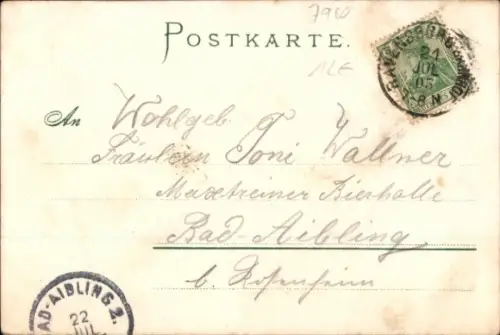 7980
POSTKARTE.
RAVENSBURG
21
JUL
05
5-6 N
An Wohlgeb.
Fräulein Toni Wallner
Maxlreiner Bierhalle
Bad-Aibling
b. Rosenheim
BAD-AIBLING 2.
22
JUL